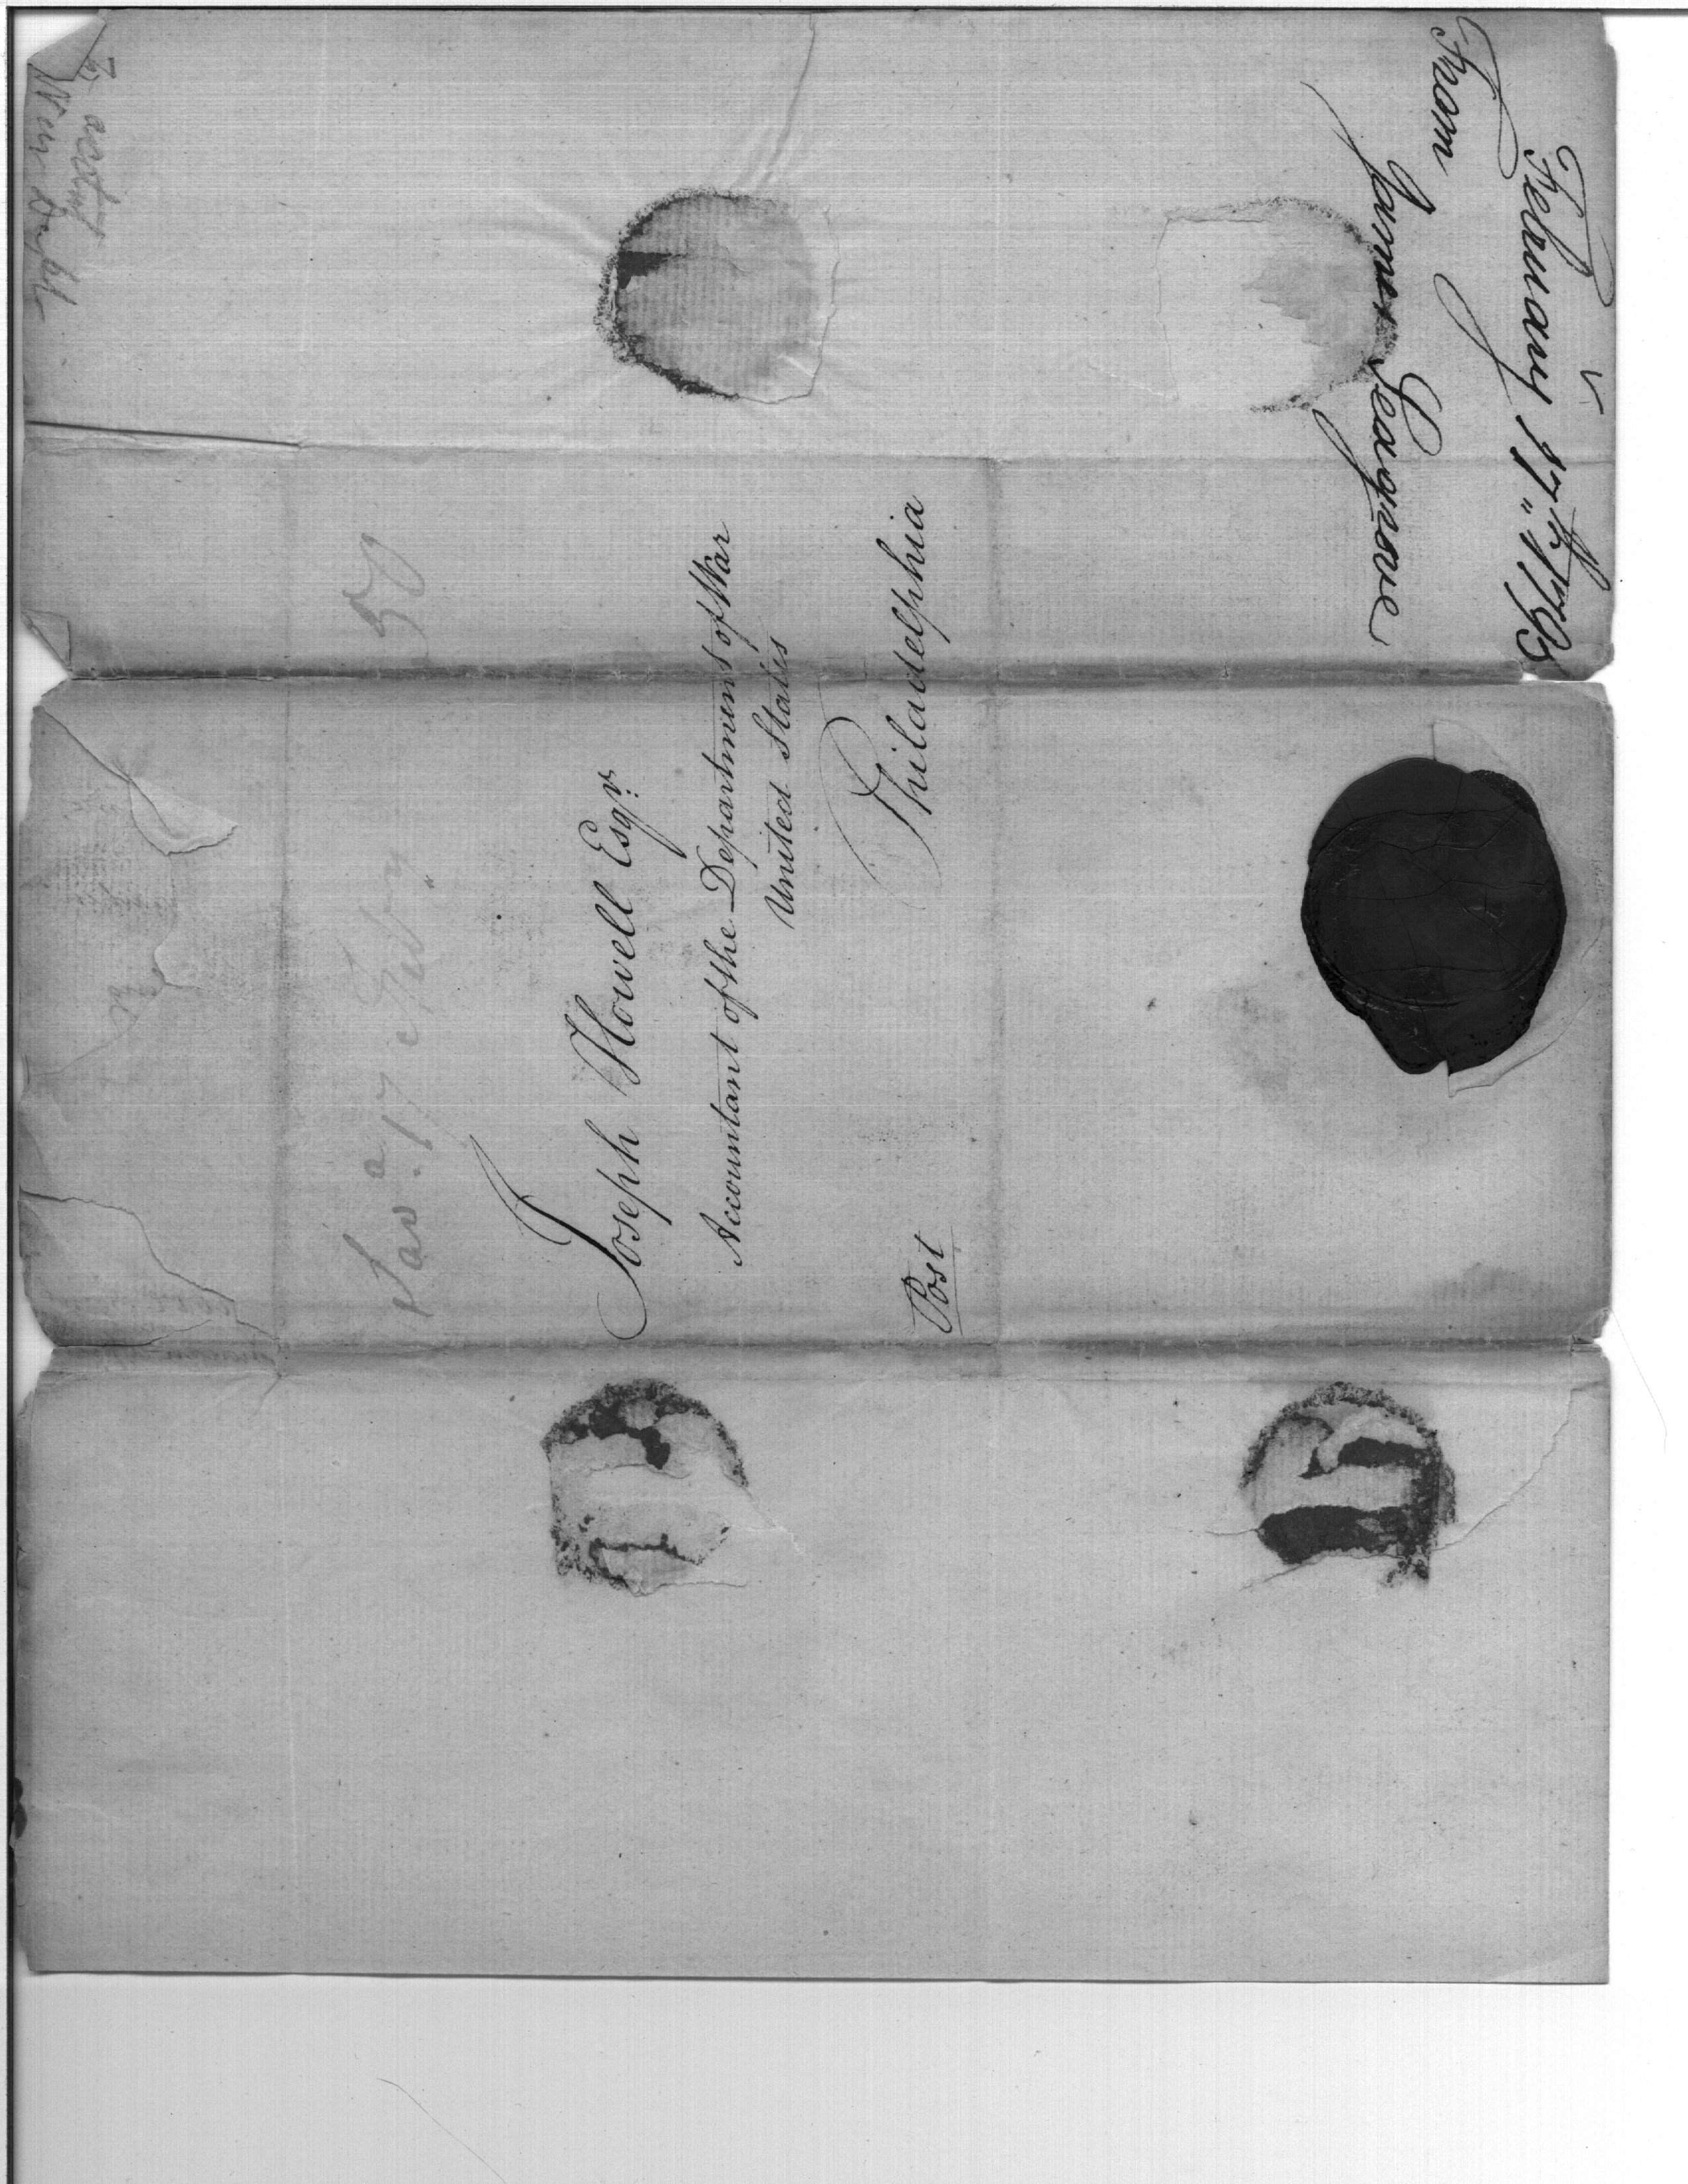 February 17th 1795
From
James Seagrove
50
Sava. 17 Feby.
Joseph Howell Esqr.
Accountant of the Department of War
United States
Philadelphia
Post